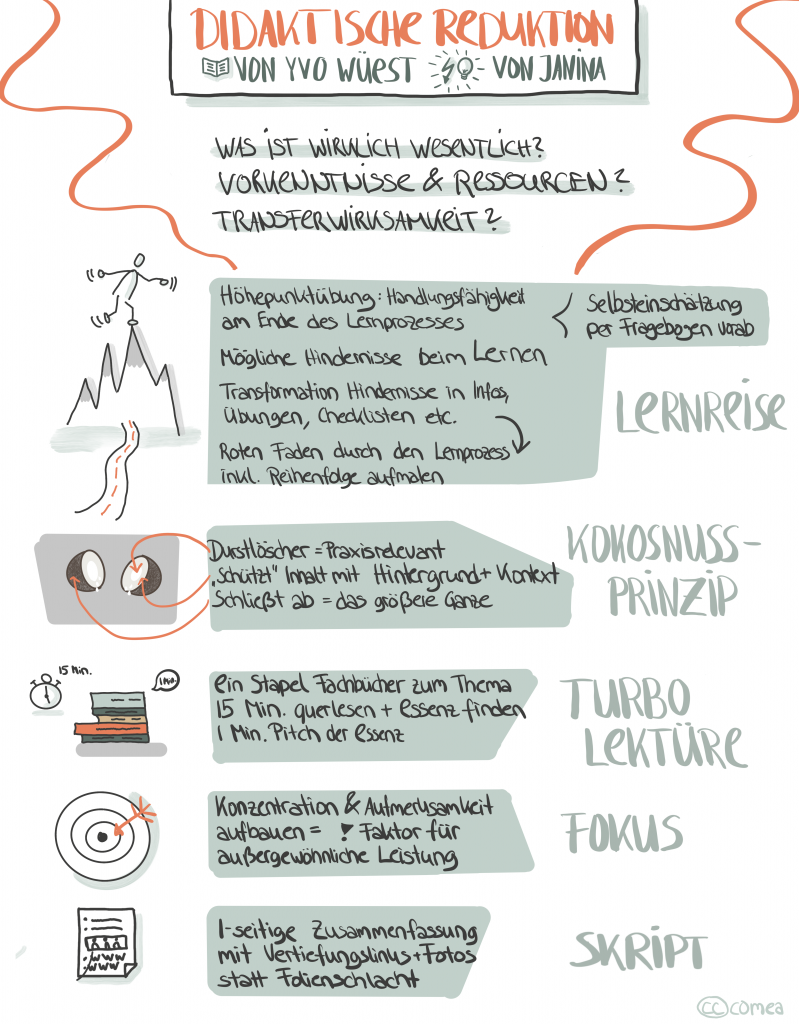 DIDAKTISCHE REDUKTION
VON YVO WÜEST VON JANINA
WAS IST WIRKLICH WESENTLICH?
VORKENNTNISSE & RESSOURCEN?
TRANSFERWIRKSAMKEIT?
Höhepunktübung: Handlungsfähigkeit
am Ende des Lernprozesses
Selbsteinschätzung
per Fragebogen vorab
Mögliche Hindernisse beim Lernen
Transformation Hindernisse in Infos,
Übungen, Checklisten etc.
Roten Faden durch den Lernprozess
inkl. Reihenfolge aufmalen
LERNREISE
Durstlöscher = Praxisrelevant
„Schützt" Inhalt mit Hintergrund + Kontext
Schließt ab = das größere Ganze
KOKOSNUSS-
PRINZIP
15 Min.
1 Min.
Ein Stapel Fachbücher zum Thema
15 Min. querlesen + Essenz finden
1 Min. Pitch der Essenz
TURBO
LEKTÜRE
Konzentration & Aufmerksamkeit
aufbauen = ! Faktor für
außergewöhnliche Leistung
FOKUS
1-seitige Zusammenfassung
mit Vertiefungslinks + Fotos
statt Folienschlacht
WWW
WWW
SKRIPT
CC comea